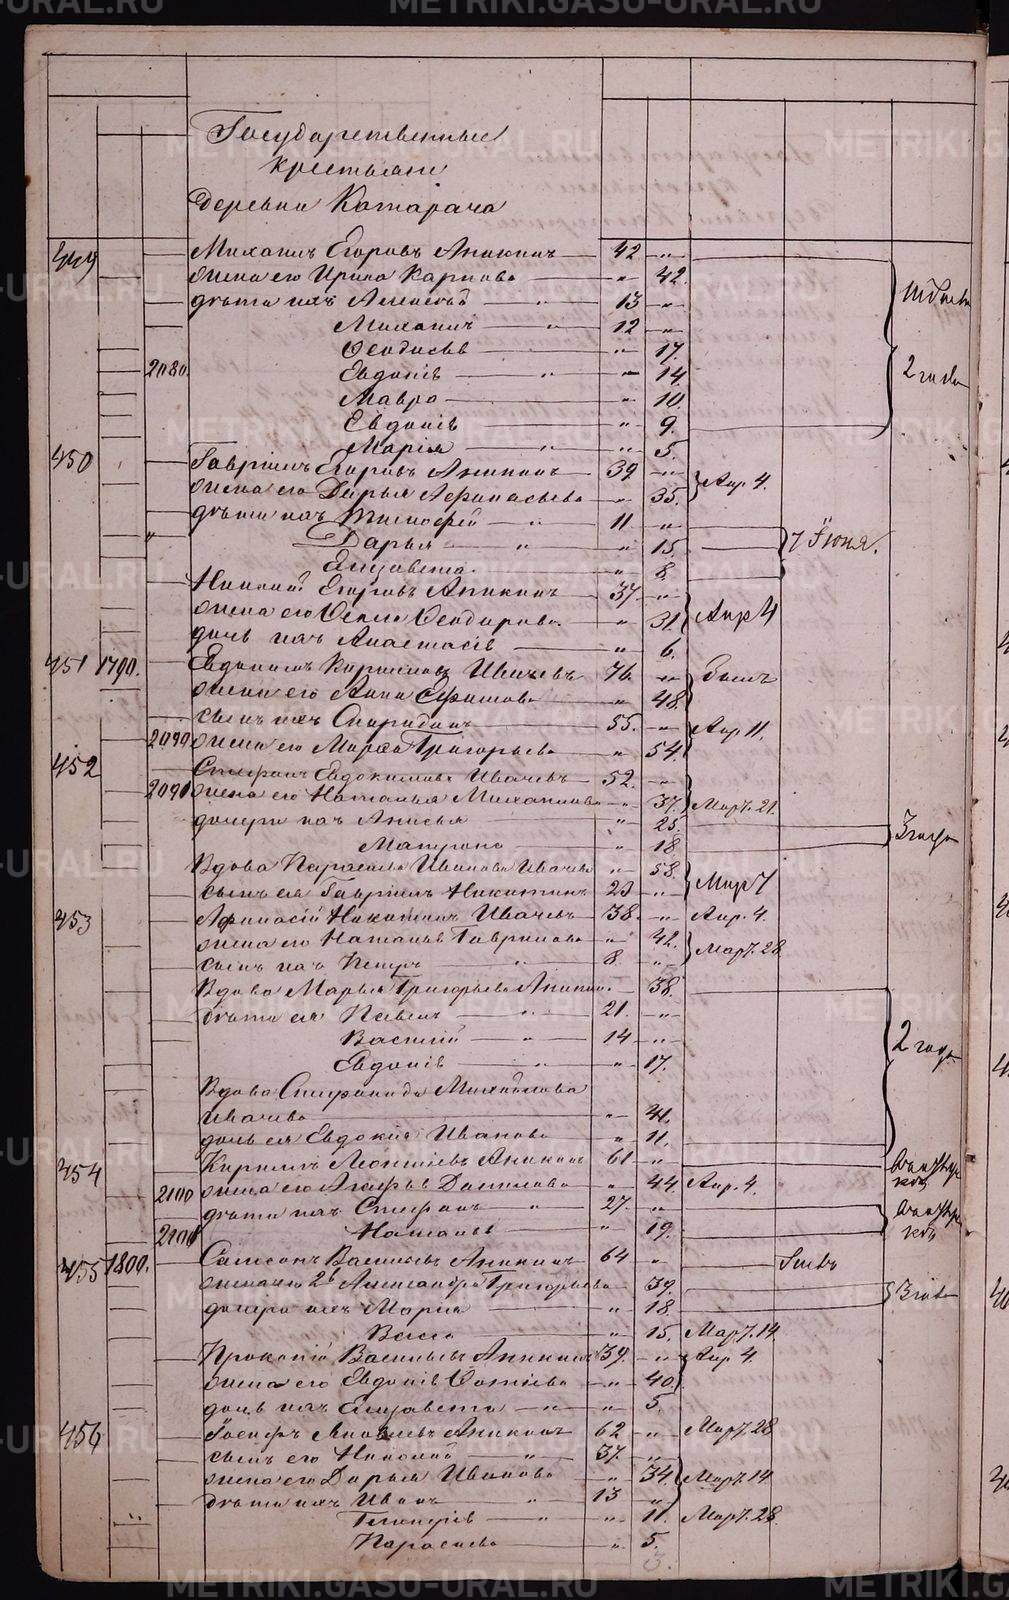 Государственные
крестьяне
деревни Катарача
449 Михаилъ Егоровъ Аникинъ 42 "
жена его Ирина Карпова " 42.
дѣти ихъ Алексѣй " 13 "
Михаилъ " 12 "
Ѳеодосья " 17.
2080 Евдокія " " 14 2 года
Мавра " 10.
Евдокія " 9.
Марія " " 5.
450 Гавріилъ Егоровъ Аникинъ 39 "
жена его Дарья Афанасьева " 35. Апр 4.
дѣти ихъ Тимофей " 11. "
Дарья " " 15. 7 Іюня.
Елизавета " 8.
Николай Егоровъ Аникинъ 37. "
жена его Ѳеодорова " 31. Апр 4
дочь ихъ Анастасія " 6.
451 1790. Евдокимъ Ивачевъ 76. "
жена его Анна Ефимова " 48.
сынъ ихъ Спиридонъ 55. " Апр 11.
2090 жена его Марѳа Григорьева " 54.
452 Стефанъ Евдокимовъ Ивачевъ 52. "
2091 жена его Наталья Михайлова " 37. Март. 21.
дочери ихъ Анисья " 25.
Матрона " 18 3 года
Вдова Параскева Иванова Ивачева " 58.
сынъ ея Гавріилъ Никитинъ 23 " Мар 7
453 Афанасій Никитинъ Ивачевъ 38. " Апр. 4.
жена его Наталья Гаврилова " 42. Март. 28
сынъ ихъ Петръ " 8 "
Вдова Марья Григорьева Аникина 38.
дѣти ея Павелъ " 21. "
Василій " 14 " 2 года
Евдокія " 17.
Вдова Степанида Михайлова
Ивачева " 41.
дочь ея Евдокия Иванова " 11.
454 Кириллъ Леонтіевъ Аникинъ 61 "
2100 жена его Агафья Данилова " 44 Апр. 4.
дѣти ихъ Стефанъ " 27. "
2101 Наталья " 19.
455 1800. Самсонъ Васильевъ Аникинъ 64 "
жена его 2я Александра Григорьева 39.
дочери ихъ Мария " 18.
Васса " 15. Март. 14.
Прокопій Васильевъ Аникинъ 39. " Апр 4.
жена его Евдокія " 40.
дочь ихъ Елизавета " " 5.
456 Іосифъ Яковлевъ Аникинъ 62 " Март. 28
сынъ его Николай " 37. "
жена его Дарья Иванова " 34. Март. 14
дѣти ихъ Иванъ " 13 "
" " 11. Март. 28.
Параскева " 5.